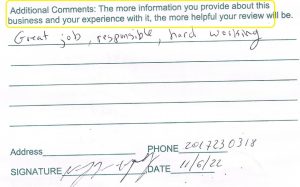 Additional Comments: The more information you provide about this
business and your experience with it, the more helpful your review will be.
Great job, responsible, hard working
Address PHONE 2017230318
SIGNATURE DATE 11/6/22